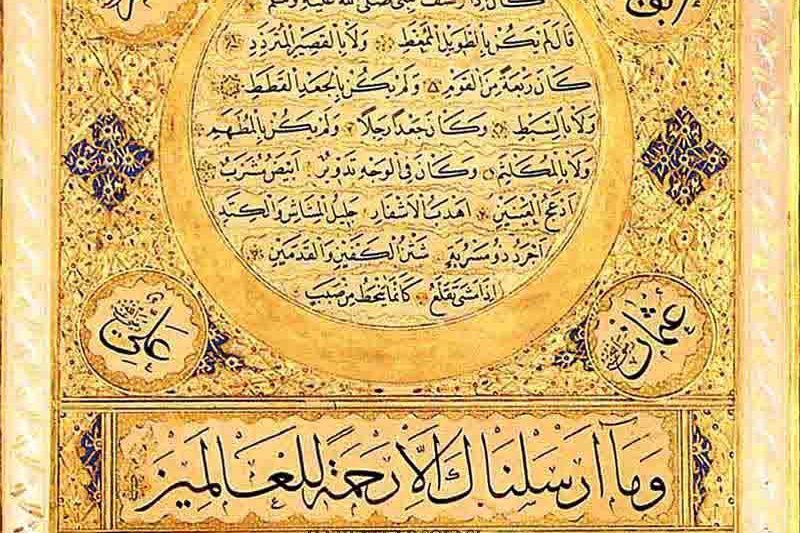 وصف النبي صلى الله عليه وسلم
قال لم يكن بالطويل الممغط ولا بالقصير المتردد
كان ربعة من القوم ولم يكن بالجعد القطط
ولا بالسبط وكان جعدا رجلا ولم يكن بالمطهم
ولا بالمكلثم وكان في الوجه تدوير ابيض مشرب
ادعج العينين اهدب الاشفار جليل المشاش والكتد
اجرد ذو مسربة شثن الكفين والقدمين
اذا مشى تقلع كانما ينحط من صبب
عثمان
علي
وما ارسلناك الا رحمة للعالمين